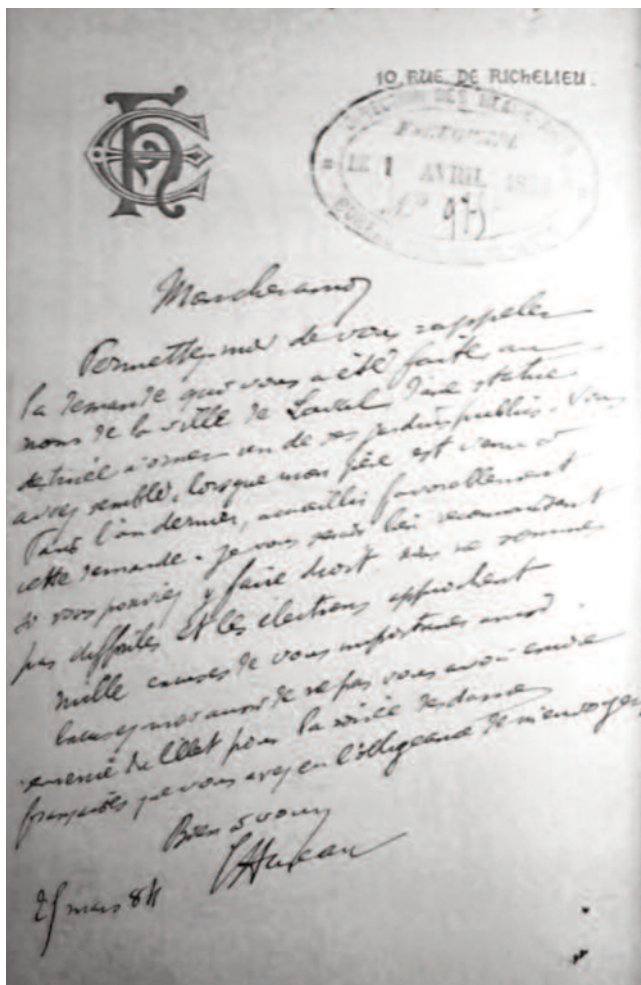 10, RUE DE RICHELIEU.
DIRECTION DES BEAUX-ARTS
LE 1 AVRIL
Mon cher ami
Permettez-moi de vous rappeler
la demande qui vous a été faite au
nom de la ville de Laval d'une statue
destinée à orner un de ses jardins publics. Vous
avez semblé, lorsque mon père est venu à
Paris l'an dernier, accueillir favorablement
cette demande. Je vous serais bien reconnaissant
si vous pouviez y faire droit. Nous ne sommes
pas difficiles et les élections approchent
Mille excuses de vous importuner ainsi.
Excusez moi aussi de ne pas vous avoir encore
remercié du billet pour la soirée des dames
françaises que vous avez eu l'obligeance de m'envoyer
Bien à vous
25 mars 84